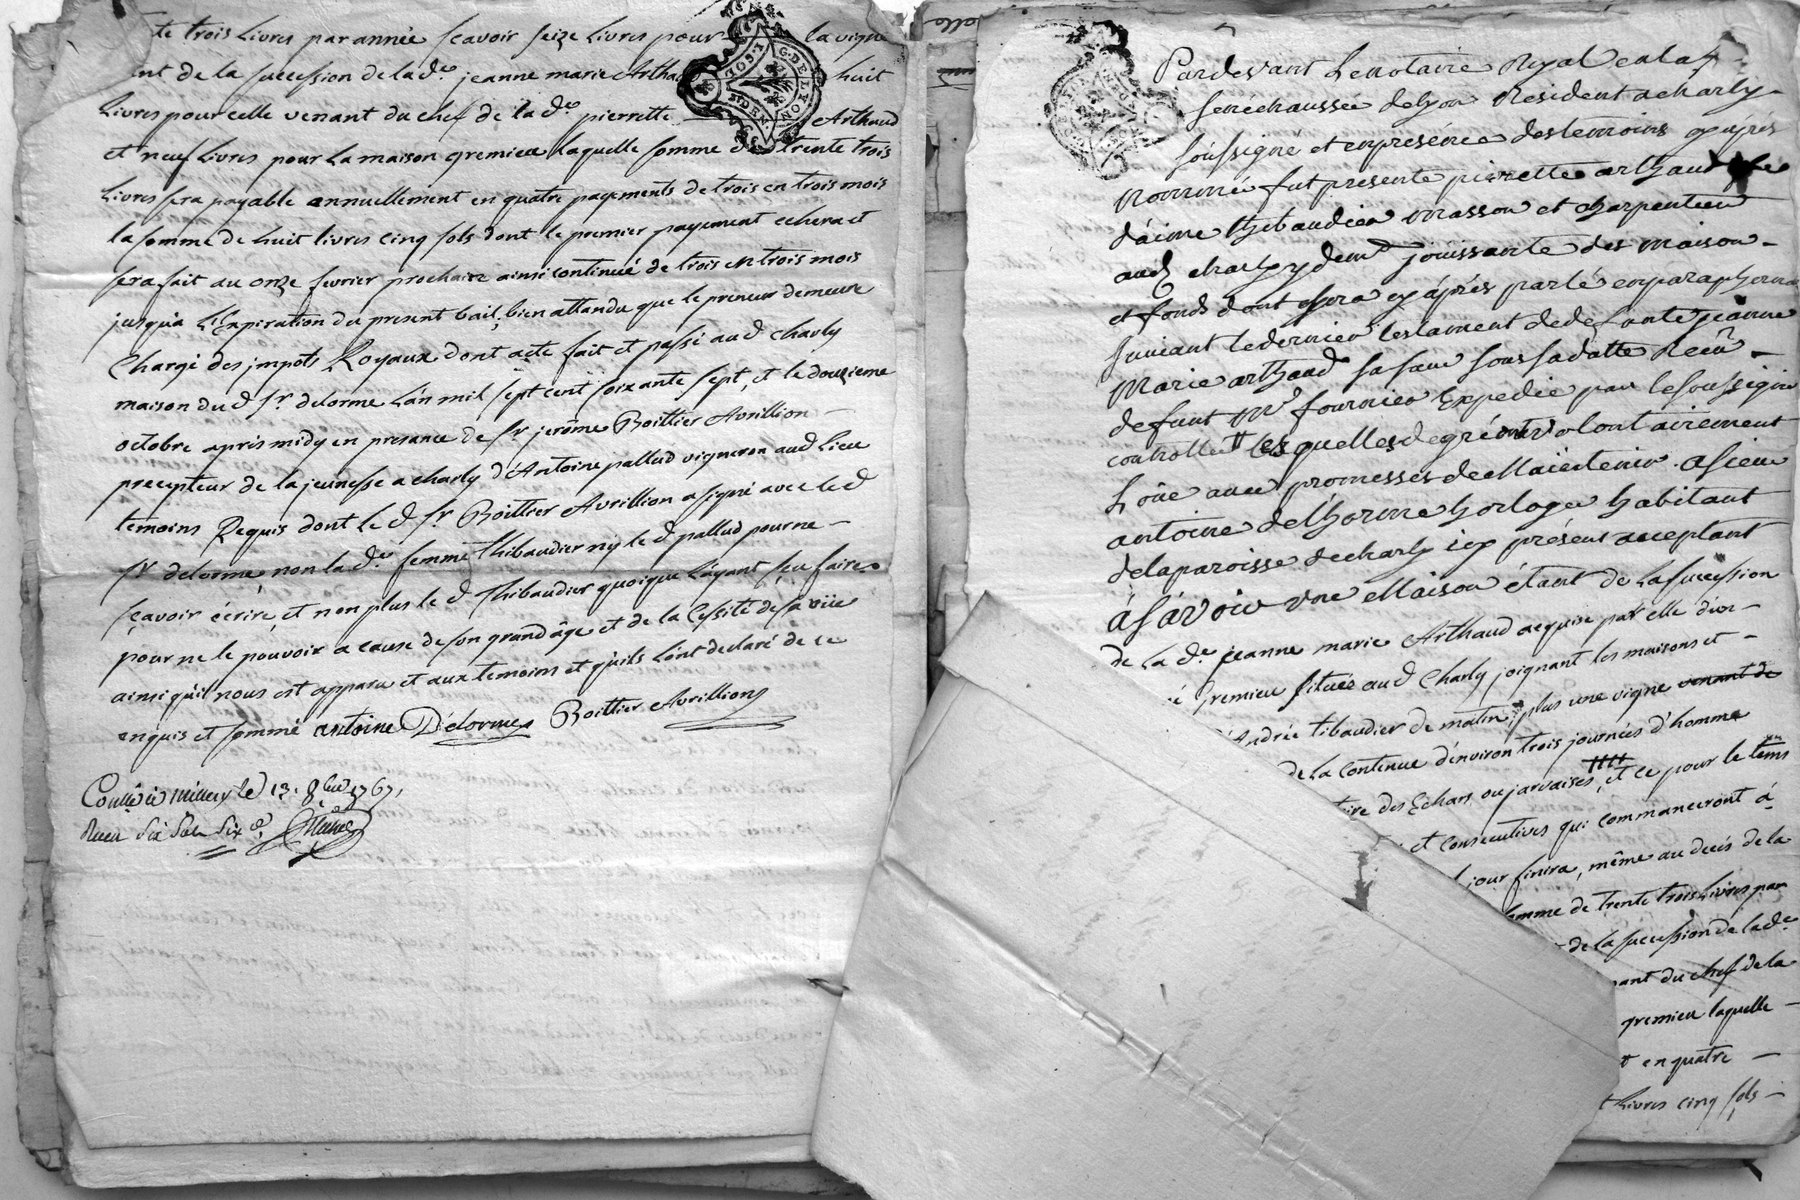 te trois Livres par année scavoir seize Livres pour la vigne
ant de la succession de la de jeanne marie Artha huit
Livres pour celle venant du chef de la de pierrette Arthaud
et neuf Livres pour La maison gremieu laquelle somme de trente trois
Livres sera payable annuellement en quatre payements de trois en trois mois
la somme de huit livres cinq sols dont le premier payement echera et
sera fait au onze fevrier prochain ainsi continué de trois en trois mois
jusqu'a L'Expiration du present bail, bien attandu que le preneur demeure
Chargé des impots Royaux dont acte fait et passé aud Charly
maison du d Sr delorme L'an mil sept cent soixante sept, et le douzieme
octobre après midy en presance de Sr jerôme Boittier Avrillion
precepteur de la jeunesse a charly d'Antoine pallud vigneron aud Lieu
temoins Requis dont le d Sr Boittier Avrillion a signé avec le d
Sr delorme non la de femme Thibaudier ny le d pallud pour ne
sçavoir écrire, et non plus le d Thibaudier quoique L'ayant sçu faire
pour ne le pouvoir a cause de son grand âge et de la Cessité de sa vüe
ainsi qu'il nous est apparu et aux temoins et qu'ils L'ont declaré de ce
enquis et sommé antoine Delorme Boittier Avrillion
Conllé a millery le 13. 8bre 1767,
Receu six sols six d
ST DEN
G. DE LYON
Pardevant Le notaire Royal en la
senéchaussée de Lyon Résident a charly
soussigné et en présence des temoins cy après
nommé fut presente pierrette arthaud fe
d'aimé thibaudier masson et charpentier
aud charly y demt jouissante des maison
et fonds dont sera cy après parlé en paraphorna
suivant le dernier testament de defunte jeanne
Marie arthaud sa saur sous sa datte Receu
defunt Mr fournier Expedié par le soussigné
controllé lesquelles de gré et volontairement
Loüe avec promesses de Maintenir a sieur
antoine delhorme horloger habitant
de la paroisse de charly icy présent acceptant
A Sávoir une Maison étant de La succession
de La de jeanne marie Arthaud acquise par elle d'un
gremieu située aud Charly joignant les maisons et
d'Andrée tibaudier de matin; plus une vigne venant de
de La continue d'environ trois journées d'homme
des Echars ou jarvaises, et ce pour le tems
et consecutives qui commanceront á
jour finira, même au decés de la
somme de trente trois Livres par
de la succession de la de
nant du chef de la
gremieu laquelle
en quatre
Livres cinq sols